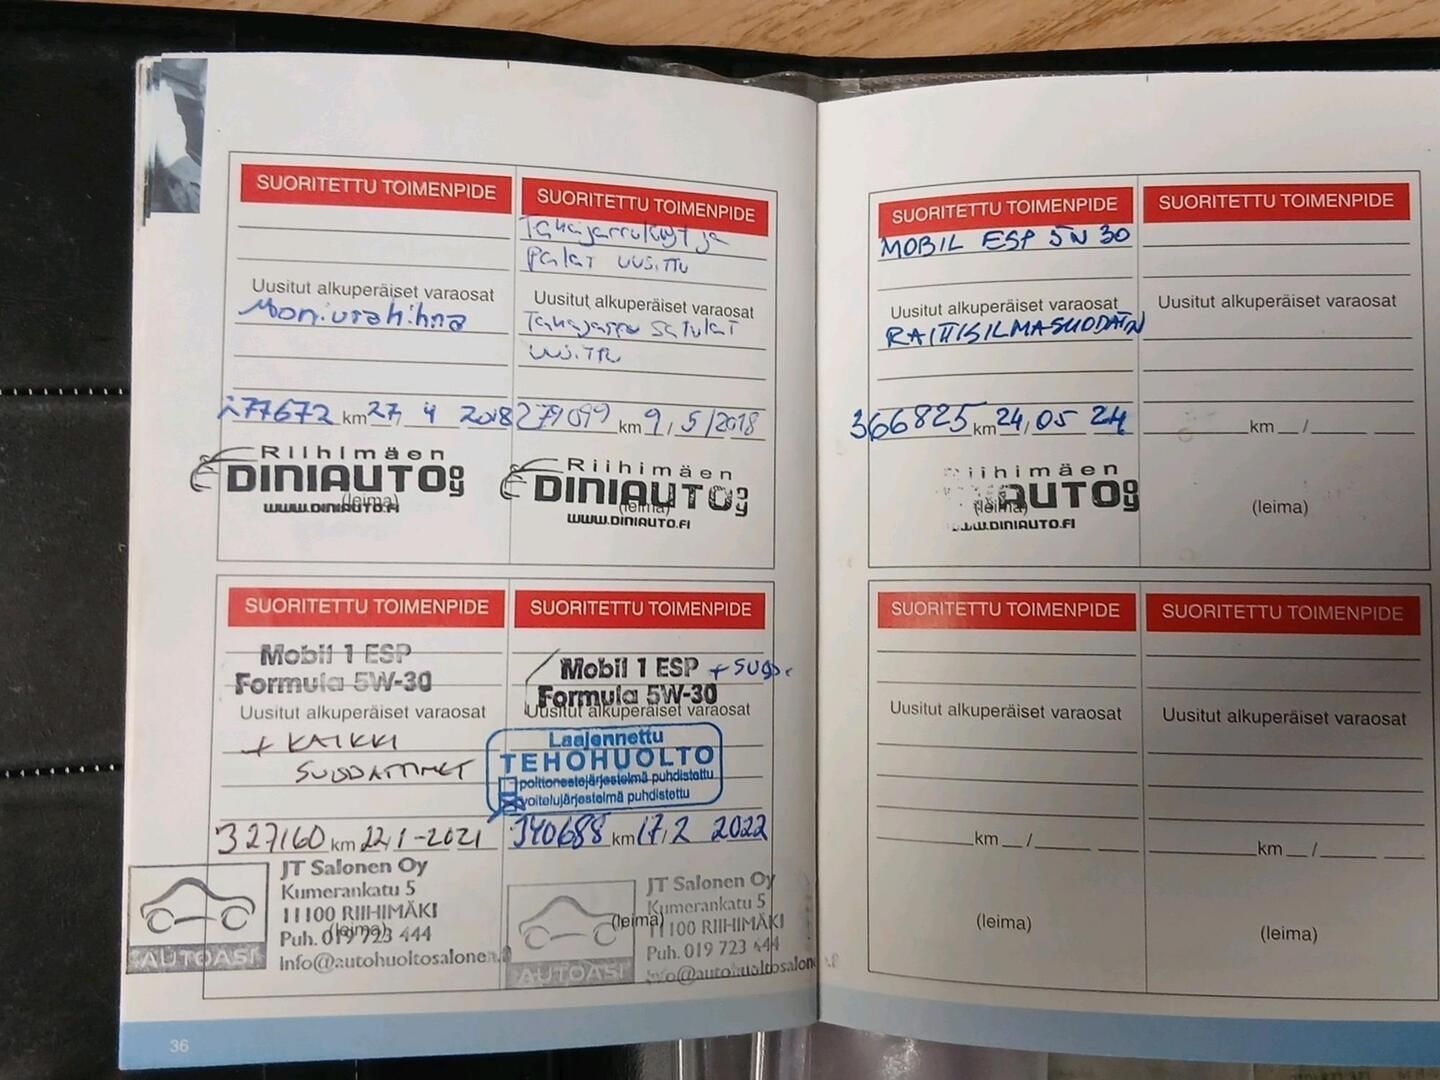 SUORITETTU TOIMENPIDE
Uusitut alkuperäiset varaosat
Moniurahihna
277672 km 27, 4 2018
Riihimäen
DINIAUTO oy
(leima)
WWW.DINIAUTO.FI
SUORITETTU TOIMENPIDE
Takajarrulevyt ja
Palat uusittu
Uusitut alkuperäiset varaosat
Takajarru satulat
uusittu
279099 km 9, 5/2018
Riihimäen
DINIAUTO oy
(leima)
WWW.DINIAUTO.FI
SUORITETTU TOIMENPIDE
Mobil 1 ESP
Formula 5W-30
Uusitut alkuperäiset varaosat
+ KAIKKI
SUODATTIMET
327160 km 22, 1-2021
JT Salonen Oy
Kumerankatu 5
11100 RIIHIMÄKI
(leima)
Puh. 019 723 444
AUTOASI
Info@autohuoltosalonen.fi
SUORITETTU TOIMENPIDE
Mobil 1 ESP + SUOD.
Formula 5W-30
Uusitut alkuperäiset varaosat
Laajennettu
TEHOHUOLTO
polttonestejärjestelmä puhdistettu
voitelujärjestelmä puhdistettu
340688 km 17, 2 2022
JT Salonen Oy
Kumerankatu 5
(leima)
11100 RIIHIMÄKI
Puh. 019 723 444
AUTOASI
Info@autohuoltosalonen.fi
36
SUORITETTU TOIMENPIDE
MOBIL ESP 5W30
Uusitut alkuperäiset varaosat
RAITISILMASUODATIN
366825 km 24, 05 24
Riihimäen
DINIAUTO oy
(leima)
WWW.DINIAUTO.FI
SUORITETTU TOIMENPIDE
Uusitut alkuperäiset varaosat
km /
(leima)
SUORITETTU TOIMENPIDE
Uusitut alkuperäiset varaosat
km /
(leima)
SUORITETTU TOIMENPIDE
Uusitut alkuperäiset varaosat
km /
(leima)